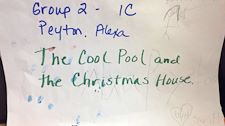 Group 2 - 1C
Peyton, Alexa
The Cool Pool and
the Christmas House.